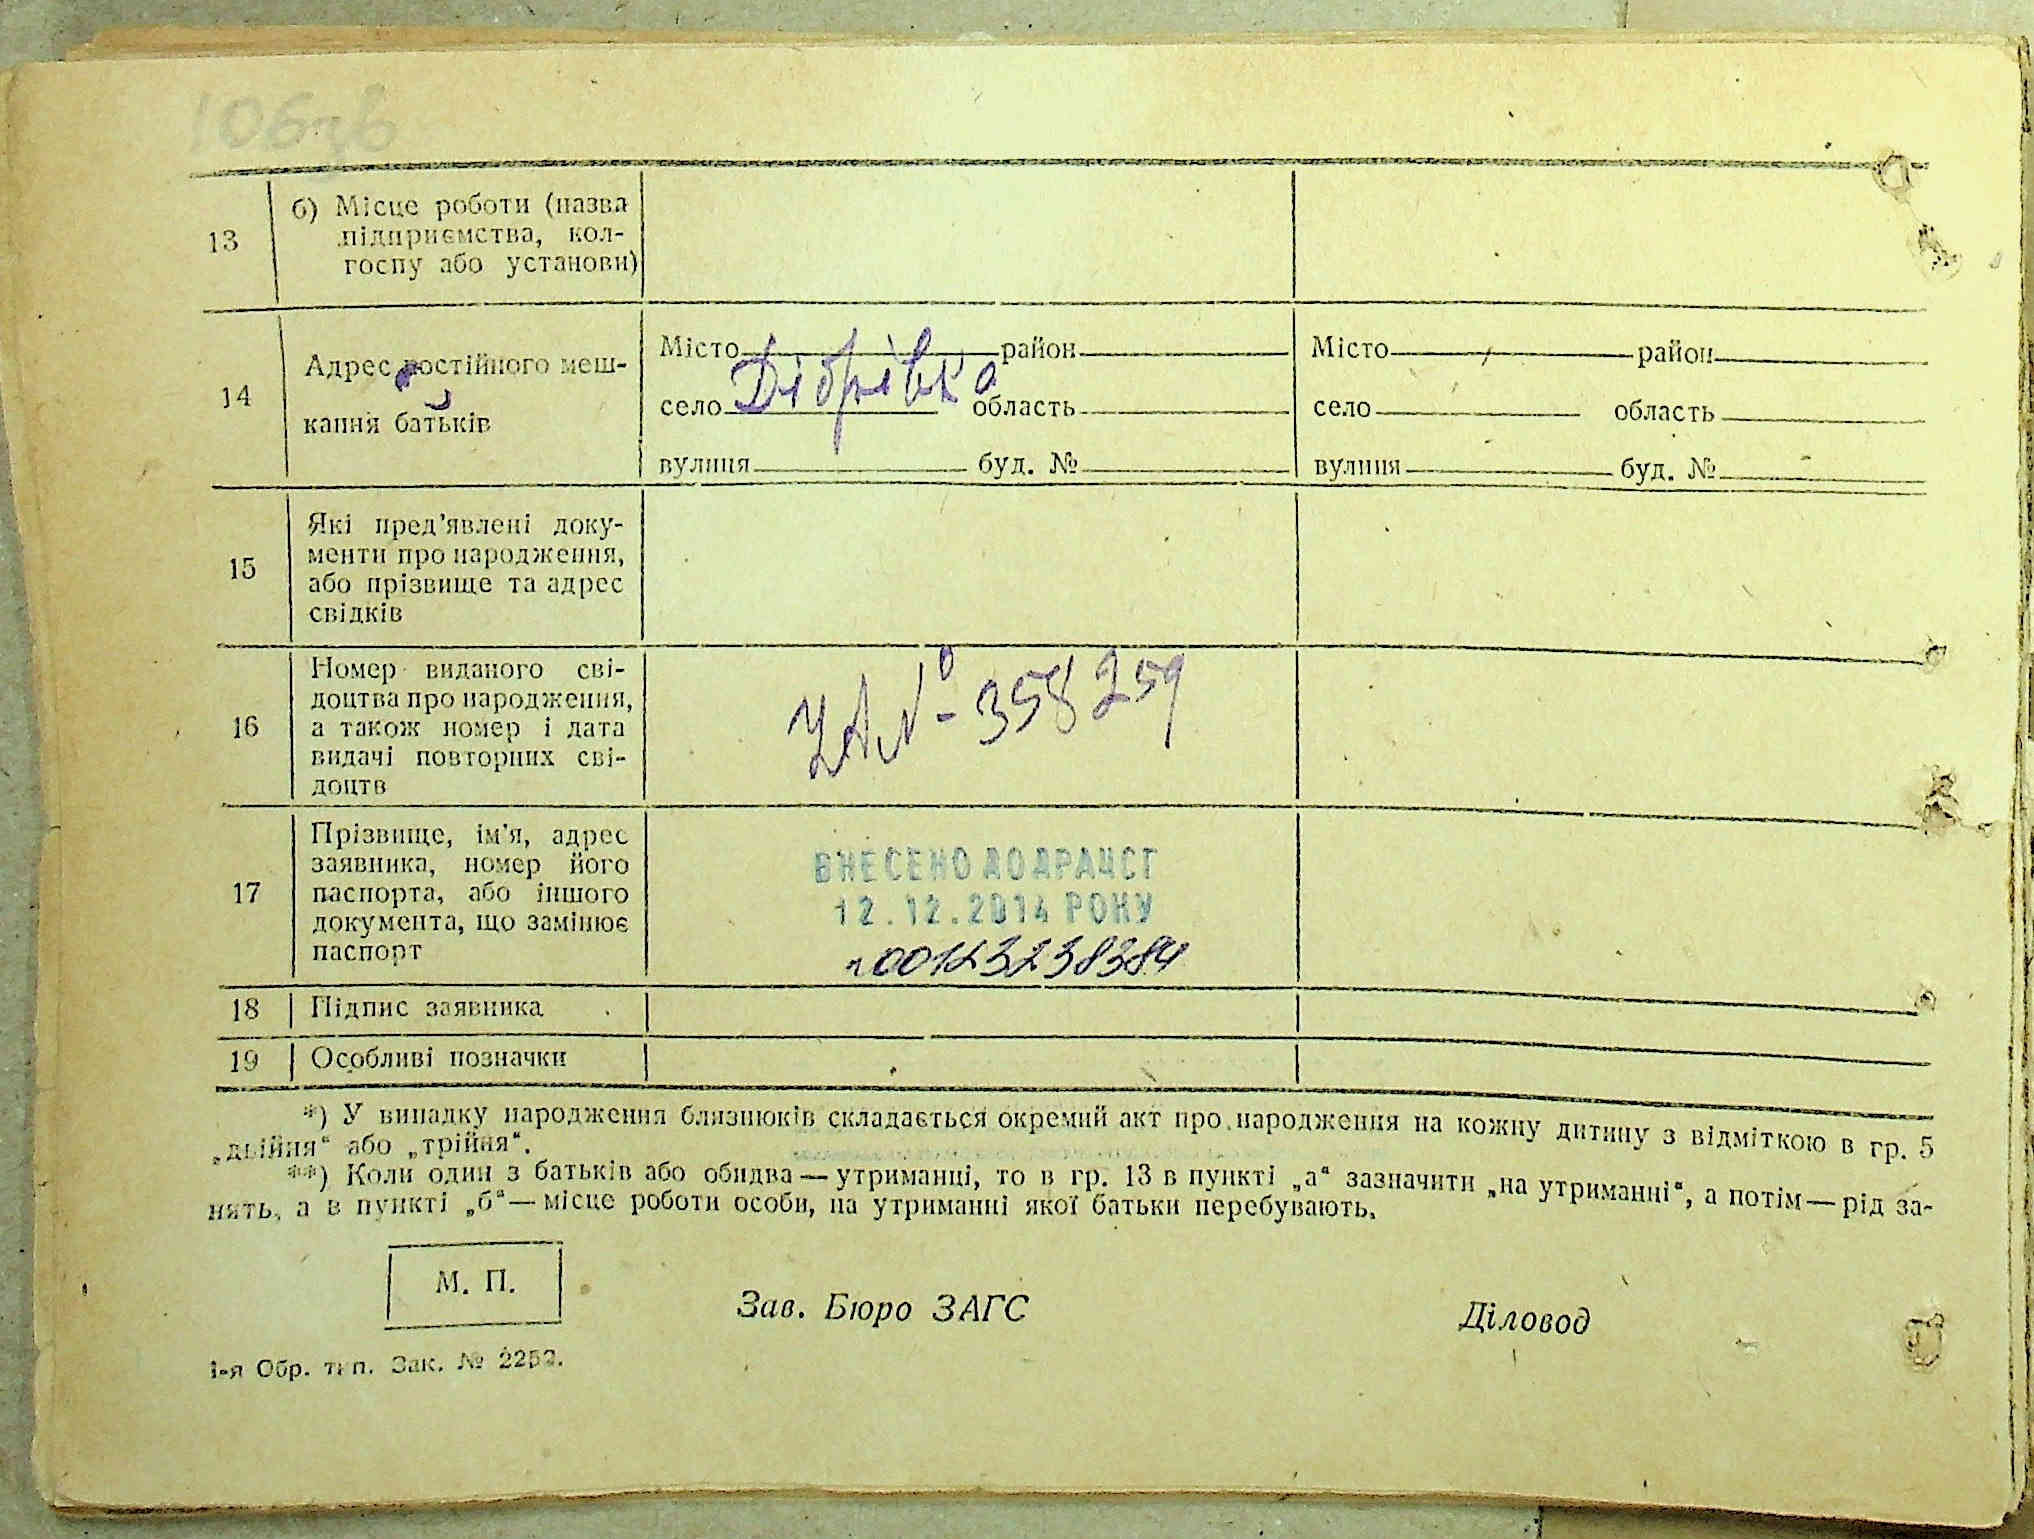 106зв
13
б) Місце роботи (назва
підприємства, кол-
госпу або установи)
14
Адрес постійного меш-
кання батьків
Місто район
село Дібрівка область
вулиця буд. №
Місто район
село область
вулиця буд. №
15
Які пред'явлені доку-
менти про народження,
або прізвище та адрес
свідків
16
Номер виданого сві-
доцтва про народження,
а також номер і дата
видачі повторних сві-
доцтв
УА № - 358259
17
Прізвище, ім'я, адрес
заявника, номер його
паспорта, або іншого
документа, що замінює
паспорт
ВНЕСЕНО ДО ДРАЦСГ
12.12.2014 РОКУ
00123238384
18 Підпис заявника
19 Особливі позначки
*) У випадку народження близнюків складається окремий акт про народження на кожну дитину з відміткою в гр. 5
„двійня“ або „трійня“.
**) Коли один з батьків або обидва — утриманці, то в гр. 13 в пункті „а“ зазначити „на утриманні“, а потім — рід за-
нять, а в пункті „б“ — місце роботи особи, на утриманні якої батьки перебувають.
М. П.
Зав. Бюро ЗАГС
Діловод
1-я Обр. тип. Зак. № 2252.